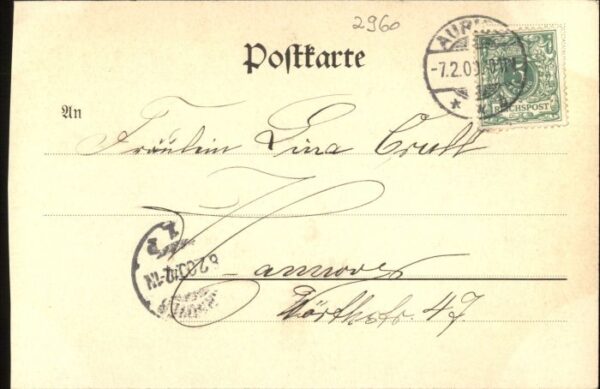 2960
Postkarte
AURICH
-7.2.00
REICHSPOST
An
Fräulein Lina Crull
Hannover
Wörthstr. 47.
8.2.00